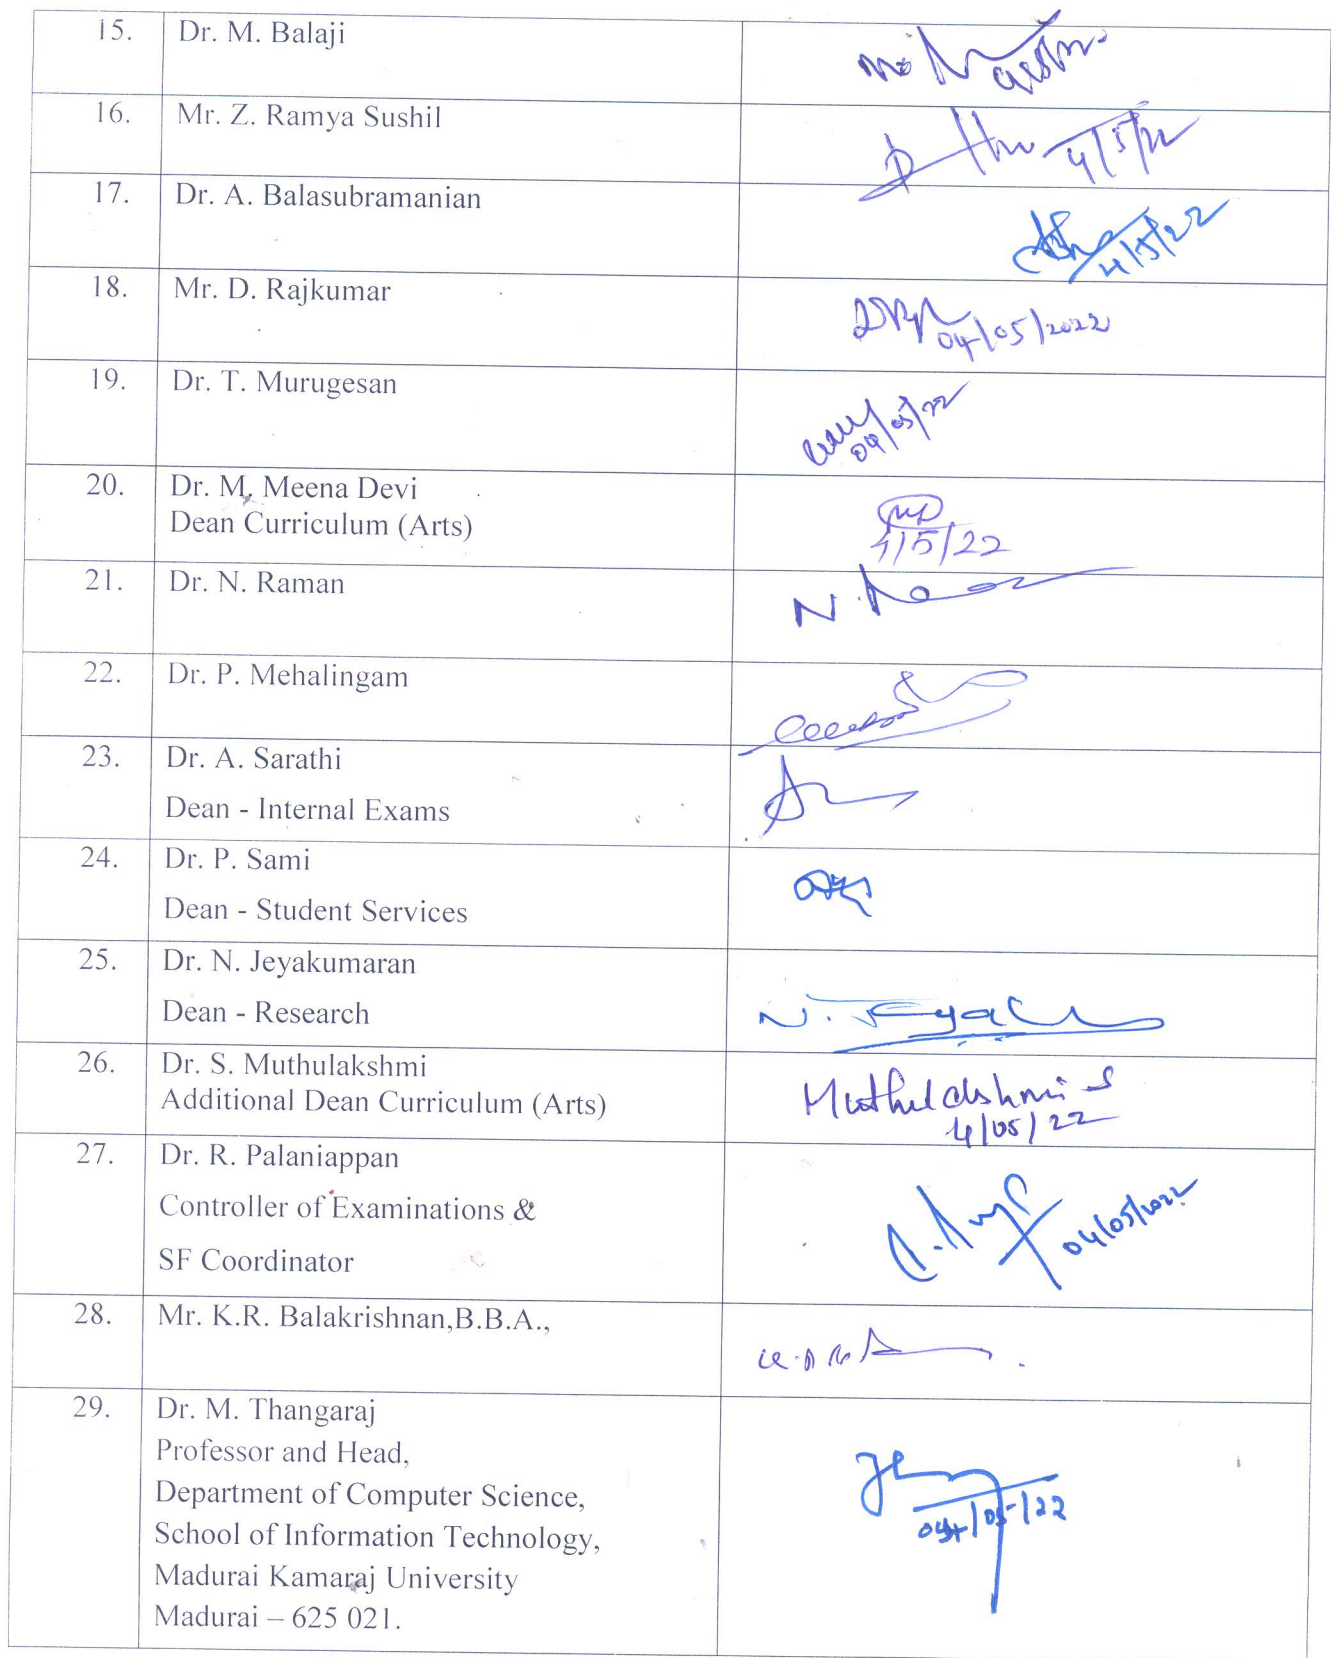 15. Dr. M. Balaji
16. Mr. Z. Ramya Sushil
4/5/22
17. Dr. A. Balasubramanian
4/5/22
18. Mr. D. Rajkumar
04/05/2022
19. Dr. T. Murugesan
04/05/22
20. Dr. M. Meena Devi
Dean Curriculum (Arts)
4/5/22
21. Dr. N. Raman
22. Dr. P. Mehalingam
23. Dr. A. Sarathi
Dean - Internal Exams
24. Dr. P. Sami
Dean - Student Services
25. Dr. N. Jeyakumaran
Dean - Research
26. Dr. S. Muthulakshmi
Additional Dean Curriculum (Arts)
Muthulakshmi S
4/05/22
27. Dr. R. Palaniappan
Controller of Examinations &
SF Coordinator
04/05/2022
28. Mr. K.R. Balakrishnan,B.B.A.,
29. Dr. M. Thangaraj
Professor and Head,
Department of Computer Science,
School of Information Technology,
Madurai Kamaraj University
Madurai – 625 021.
04/05/22